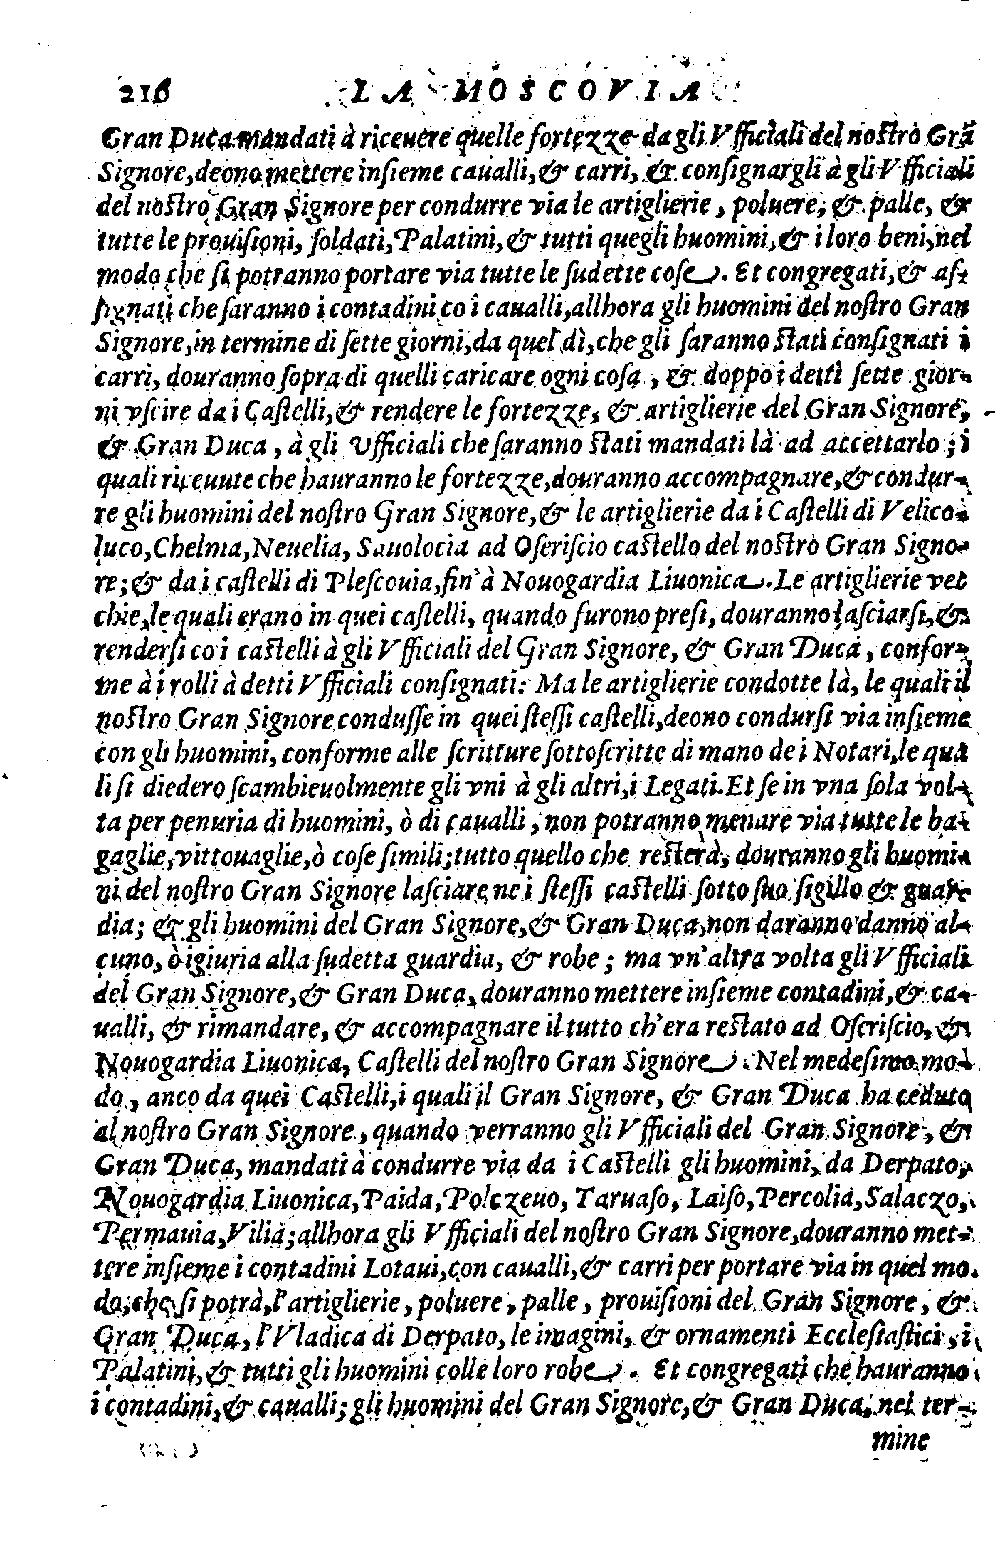 216 LA MOSCOVIA
Gran Duca mandati à riceuere quelle fortezze da gli Vfficiali del noſtro Grã
Signore, deono mettere inſieme caualli, & carri, & conſignargli à gli Vfficiali
del noſtro Gran Signore per condurre via le artiglierie, poluere, & palle, &
tutte le prouiſioni, ſoldati, Palatini, & tutti quegli huomini, & i loro beni, nel
modo che ſi potranno portare via tutte le ſudette coſe. Et congregati, & aſ-
ſignati che ſaranno i contadini co i caualli, allhora gli huomini del noſtro Gran
Signore, in termine di ſette giorni, da quel dì, che gli ſaranno ſtati conſignati i
carri, douranno ſopra di quelli caricare ogni coſa, & doppo i detti ſette gior-
ni vſcire da i Caſtelli, & rendere le fortezze, & artiglierie del Gran Signore,
& Gran Duca, à gli Vfficiali che ſaranno ſtati mandati là ad accettarlo; i
quali riceuute che hauranno le fortezze, douranno accompagnare, & condur-
re gli huomini del noſtro Gran Signore, & le artiglierie da i Caſtelli di Velico-
luco, Chelma, Neuelia, Sauolocia ad Oſeriſcio caſtello del noſtro Gran Signo-
re; & da i caſtelli di Pleſcouia, fin'à Nouogardia Liuonica. Le artiglierie vec
chie, le quali erano in quei caſtelli, quando furono preſi, douranno laſciarſi, &
renderſi co i caſtelli à gli Vfficiali del Gran Signore, & Gran Duca, confor-
me à i rolli à detti Vfficiali conſignati: Ma le artiglierie condotte là, le quali il
noſtro Gran Signore conduſſe in quei ſteſſi caſtelli, deono condurſi via inſieme
con gli huomini, conforme alle ſcritture ſottoſcritte di mano de i Notari, le qua
li ſi diedero ſcambieuolmente gli vni à gli altri, i Legati. Et ſe in vna ſola vol-
ta per penuria di huomini, ò di caualli, non potranno menare via tutte le ba-
gaglie, vittouaglie, ò coſe ſimili; tutto quello che reſterà, douranno gli huomi-
ni del noſtro Gran Signore laſciare ne i ſteſſi caſtelli ſotto ſuo ſigillo & guar-
dia; & gli huomini del Gran Signore, & Gran Duca, non daranno danno al-
cuno, ò igiuria alla ſudetta guardia, & robe; ma vn'altra volta gli Vfficiali
del Gran Signore, & Gran Duca, douranno mettere inſieme contadini, & ca-
ualli, & rimandare, & accompagnare il tutto ch'era reſtato ad Oſcriſcio, &
Nouogardia Liuonica, Caſtelli del noſtro Gran Signore. Nel medeſimo mo-
do, anco da quei Caſtelli, i quali il Gran Signore, & Gran Duca ha ceduto
al noſtro Gran Signore, quando verranno gli Vfficiali del Gran Signore, &
Gran Duca, mandati à condurre via da i Caſtelli gli huomini, da Derpato,
Nouogardia Liuonica, Paida, Polczeuo, Taruaſo, Laiſo, Percolia, Salaczo,
Permauia, Vilia; allhora gli Vfficiali del noſtro Gran Signore, douranno met-
tere inſieme i contadini Lotaui, con caualli, & carri per portare via in quel mo-
do, che ſi potrà, l'artiglierie, poluere, palle, prouiſioni del Gran Signore, &
Gran Duca, l'Vladica di Derpato, le imagini, & ornamenti Eccleſiaſtici, i
Palatini, & tutti gli huomini colle loro robe. Et congregati che hauranno
i contadini, & caualli; gli huomini del Gran Signore, & Gran Duca, nel ter-
mine